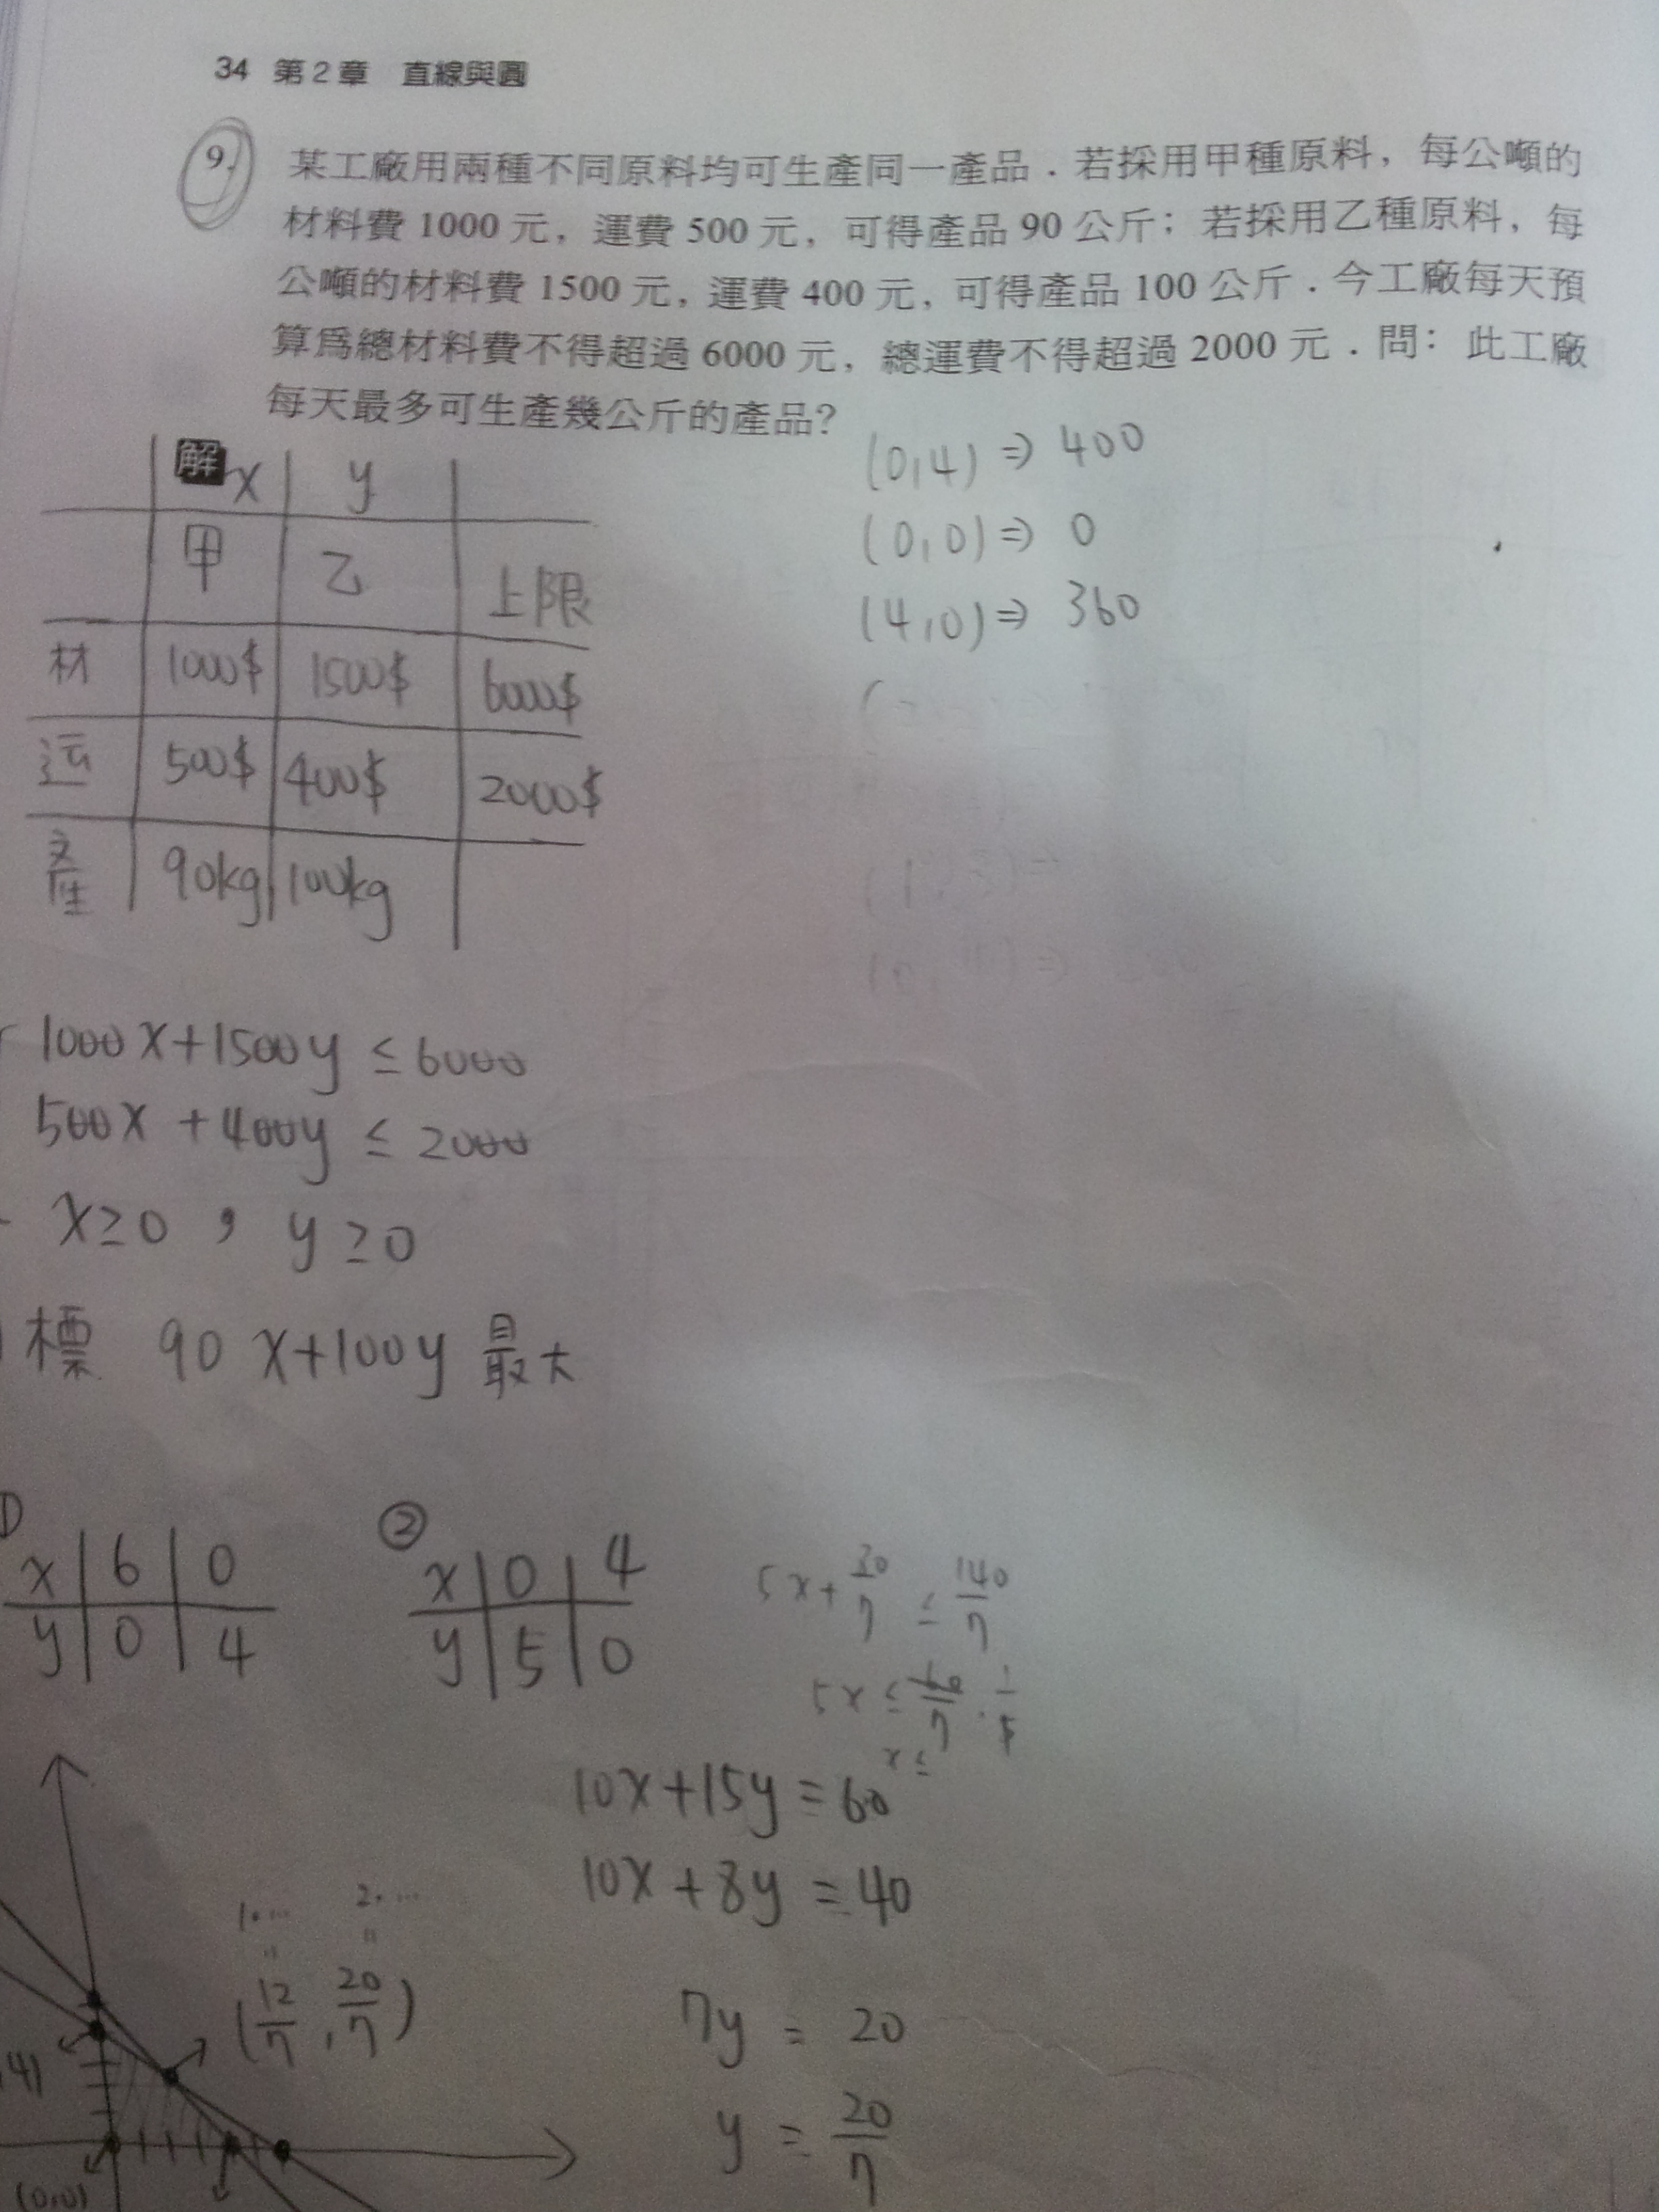 34 第2章 直線與圓
9. 某工廠用兩種不同原料均可生產同一產品．若採用甲種原料，每公噸的
材料費 1000 元，運費 500 元，可得產品 90 公斤；若採用乙種原料，每
公噸的材料費 1500 元，運費 400 元，可得產品 100 公斤．今工廠每天預
算為總材料費不得超過 6000 元，總運費不得超過 2000 元．問：此工廠
每天最多可生產幾公斤的產品？
解 x y
甲 乙 上限
材 1000$ 1500$ 6000$
运 500$ 400$ 2000$
產 90kg 100kg
(0,4) ⇒ 400
(0,0) ⇒ 0
(4,0) ⇒ 360
(
1000x+1500y ≤ 6000
500x +400y ≤ 2000
x≥0 , y≥0
標 90x+100y 最大
①
x 6 0
y 0 4
②
x 0 4
y 5 0
5x+ 20/7 ≤ 140/7
5x ≤
x ≤
10x+15y = 60
10x+8y = 40
7y = 20
y = 20/7
1.… 2.…
" "
(12/7, 20/7)
4)
(0,0)